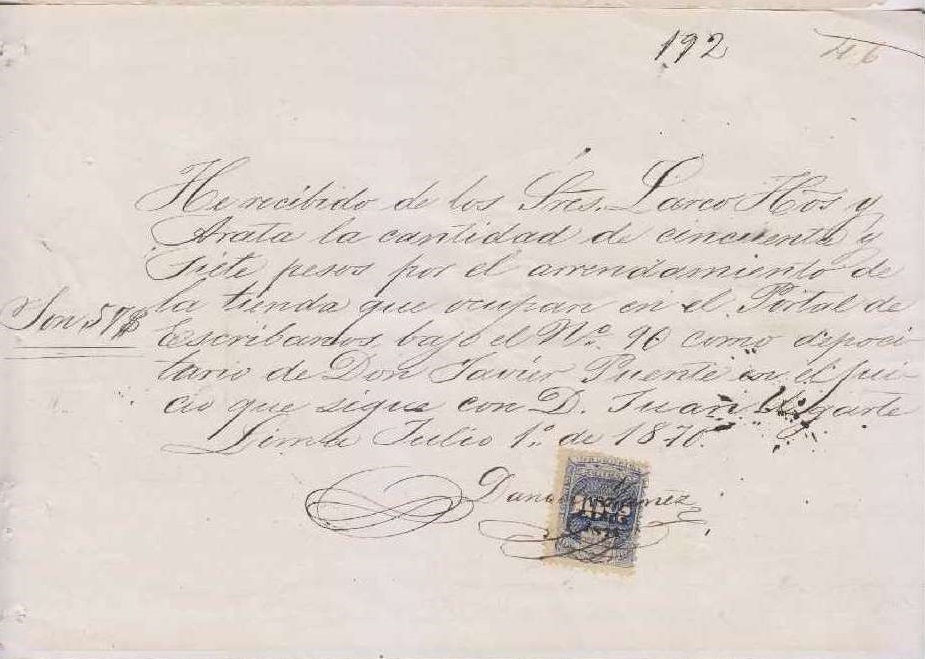 192
46
He recibido de los Sres. Larco Hos y
Arata la cantidad de cincuenta y
siete pesos por el arrendamiento de
la tienda que ocupan en el Portal de
Son 57$
Escribanos, bajo el No. 90 como depoci-
tario de Don Javier Puente en el jui-
cio que sigue con D. Juan Ugarte
Lima Julio 1o. de 1870.